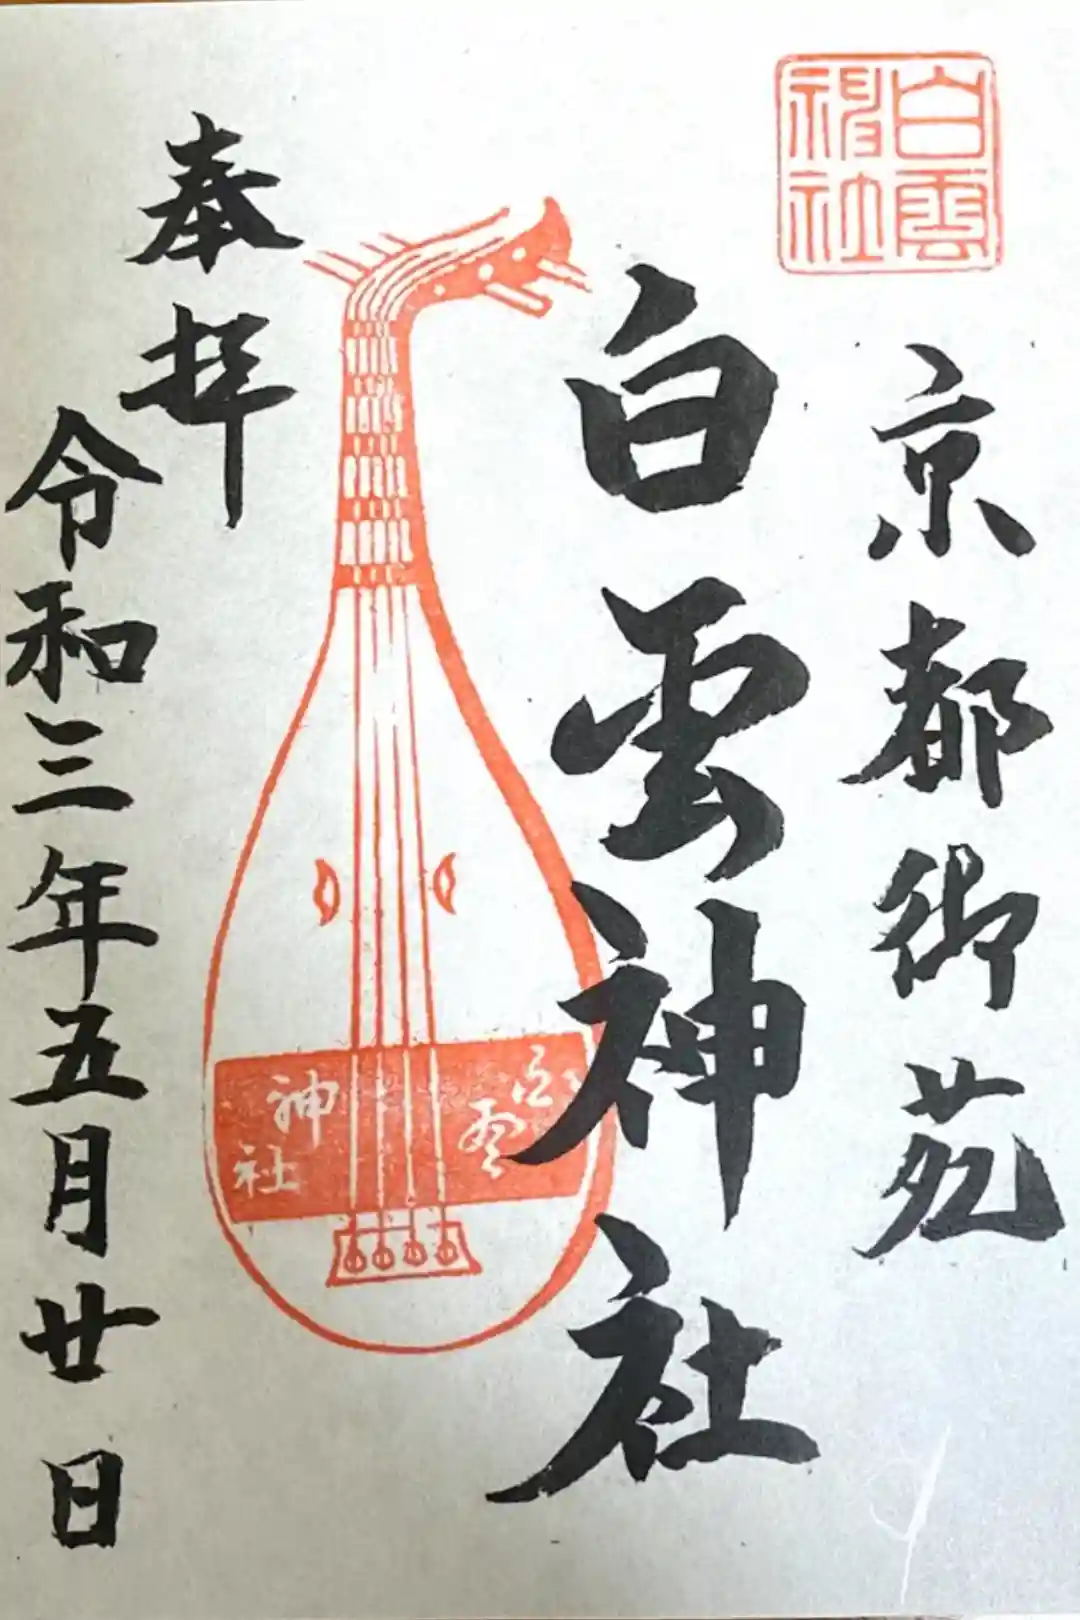 白雲
神社
京都御苑
白雲神社
神
社
奉拝
令和三年五月廿日